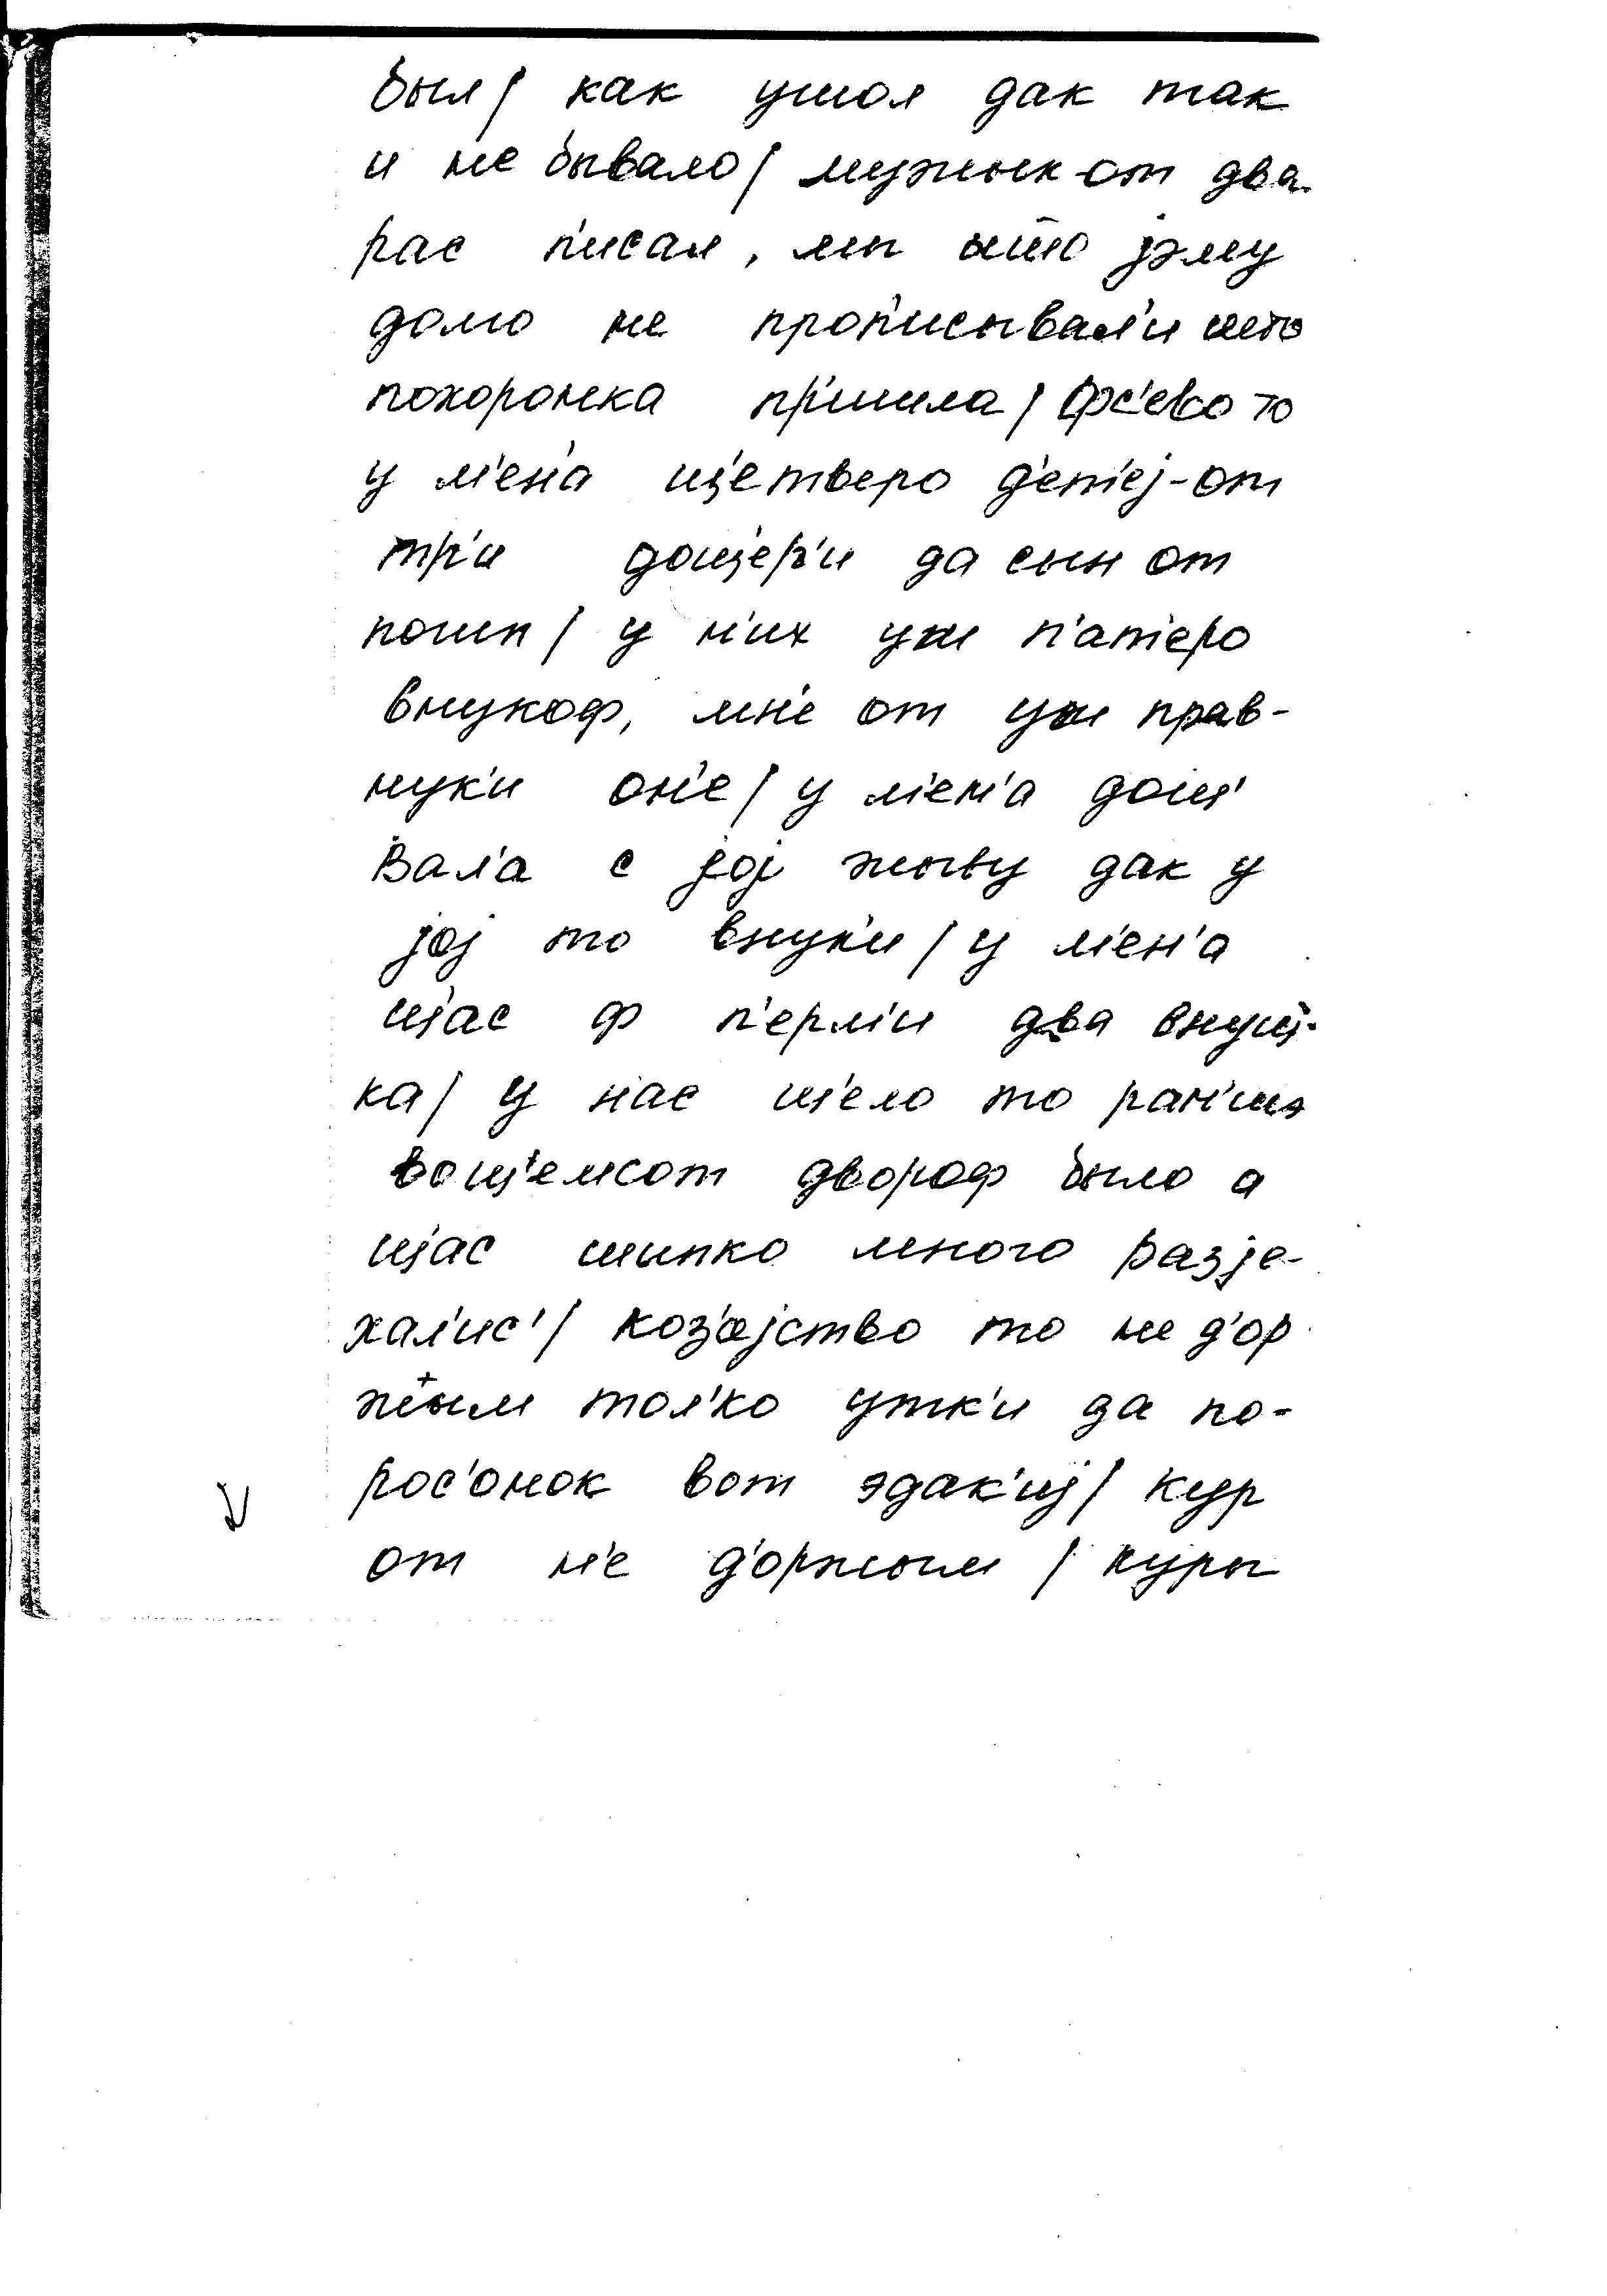 был / как ушол дак так
и не бывало / мужык-от два
рас п'исал, мы што jэму
домо не проп'исывал'и што
похоронка пр'ишла / фс'ево то
у м'ен'а щетверо д'ет'еj-от
тр'и дощер'и да сын от
помп / у н'их уш п'ат'еро
внукоф, мн'е от уш прав-
нук'и он'е / у м'ен'а дощ'
Вал'а с jоj жыву дак у
jоj то внук'и / у м'ен'а
щ'ас ф п'ерм'и два внущ-
ка / у нас с'ело то ран'шэ
вос'емсот двороф было а
щас шыпко много разjе-
хал'ис' / хоз'аjство то не д'ор
жым тол'ко утк'и да по-
рос'онок вот эдак'иj / кур
от н'е д'оржым / куры